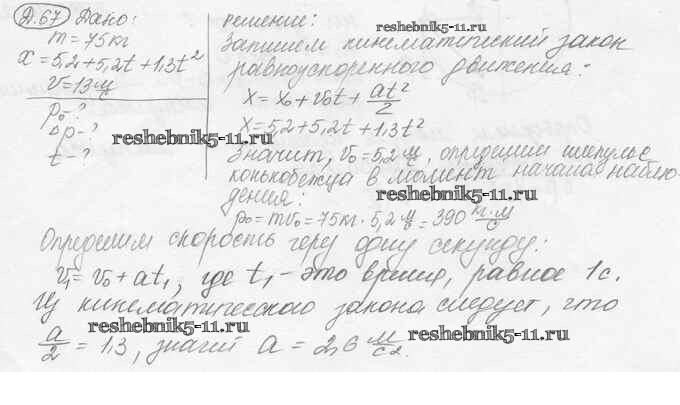 Д.67 Дано:
m = 75 кг
x = 5,2 + 5,2t + 1,3t²
v = 13 м/с
p₀ - ?
Δp - ?
t - ?
решение:
reshebnik5-11.ru
Запишем кинематический закон
равноускоренного движения:
x = x₀ + v₀t + at²/2
x = 5,2 + 5,2t + 1,3t²
reshebnik5-11.ru
Значит, v₀ = 5,2 м/с, определим импульс
конькобежца в момент начала наблю-
reshebnik5-11.ru
дения:
p₀ = mv₀ = 75 кг · 5,2 м/с = 390 кг·м/с
Определим скорость через одну секунду:
v₁ = v₀ + at₁, где t₁ - это время, равное 1с.
Из кинематического закона следует, что
reshebnik5-11.ru
reshebnik5-11.ru
a/2 = 1,3, значит a = 2,6 м/с².